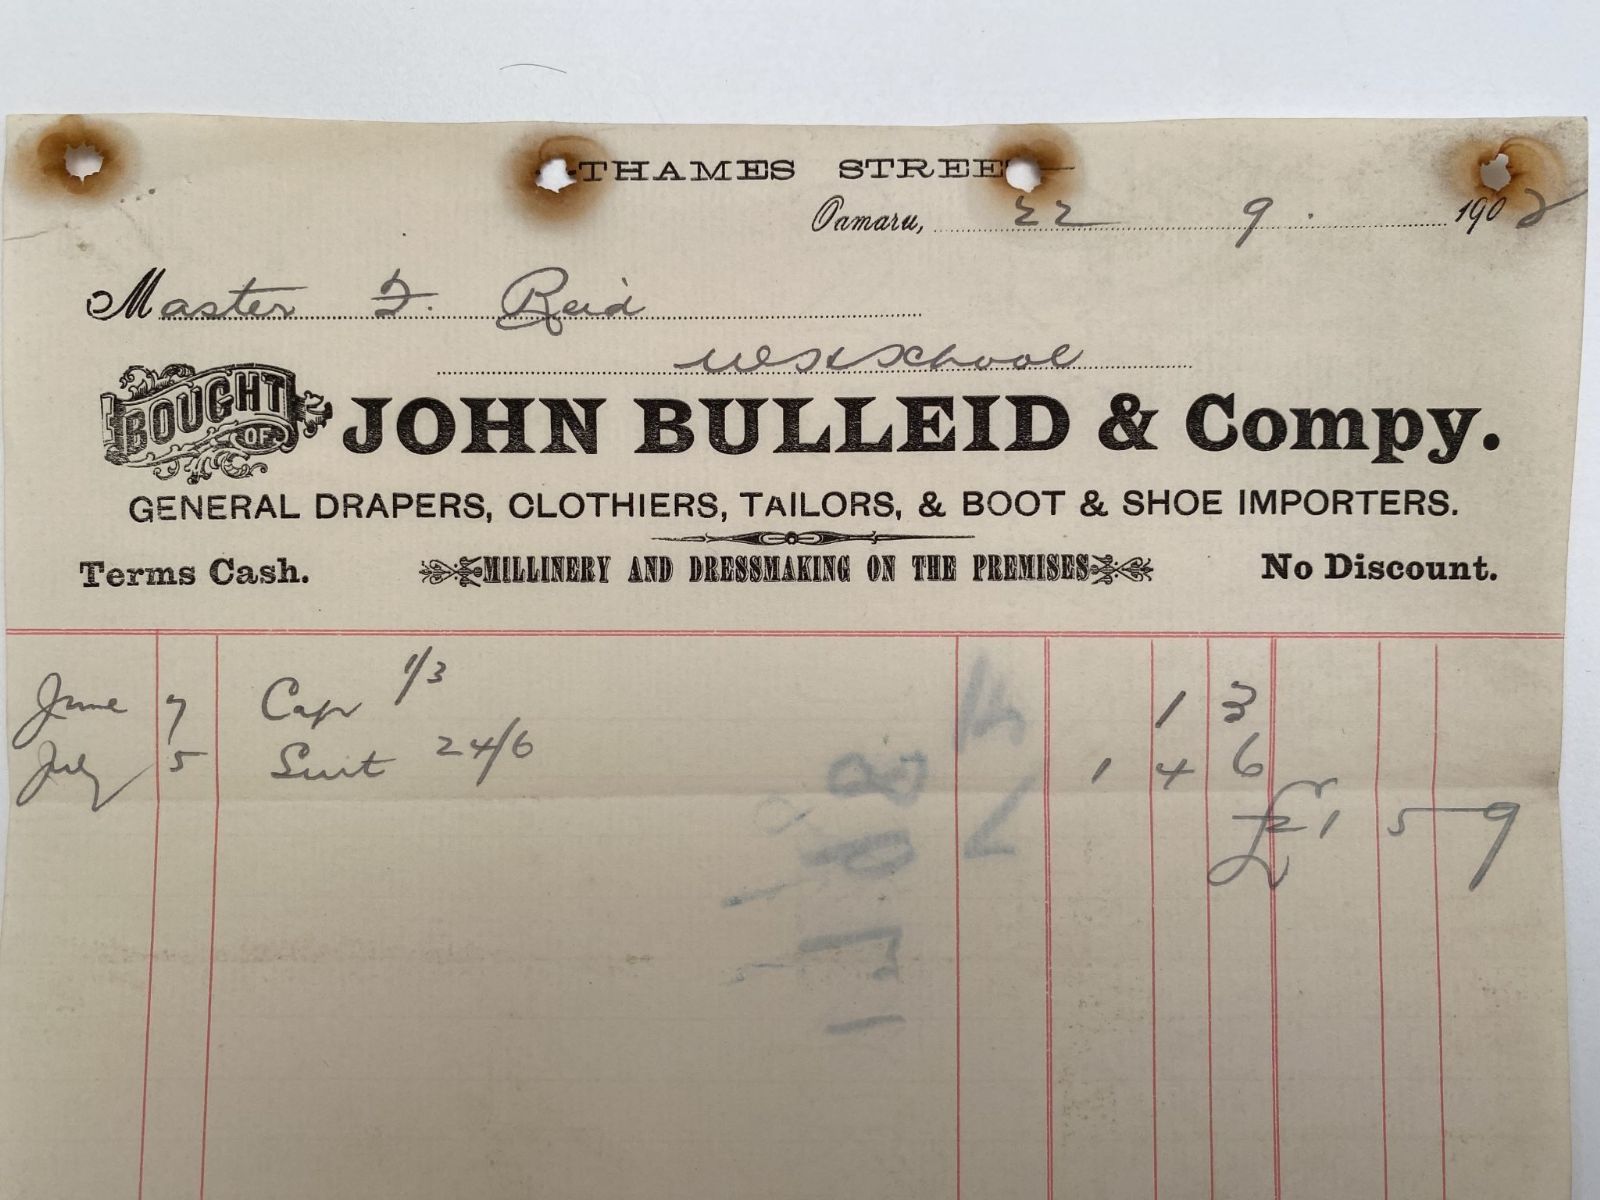 THAMES STREET
Oamaru, 22 9. 1902
Master F. Reid
West School
BOUGHT OF JOHN BULLEID & Compy.
GENERAL DRAPERS, CLOTHIERS, TAILORS, & BOOT & SHOE IMPORTERS.
Terms Cash. MILLINERY AND DRESSMAKING ON THE PREMISES No Discount.
June 7 Cap 1/3 1 3
July 5 Suit 24/6 1 4 6
£1 5 9